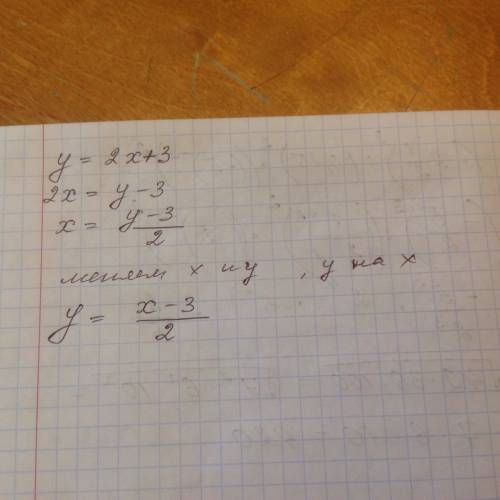 y = 2x+3
2x = y-3
x = \frac{y-3}{2}
меняем x и y , y на x
y = \frac{x-3}{2}